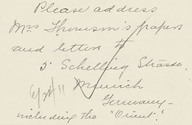 Please address
Mrs Thomson's papers
and letters to
5 Schelling Strasse
Munich
Germany—
including the "Orient".